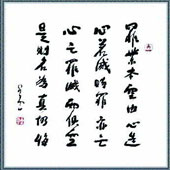 罪業本空由心造
心若滅時罪亦亡
心亡罪滅兩俱空
是則名為真懺悔